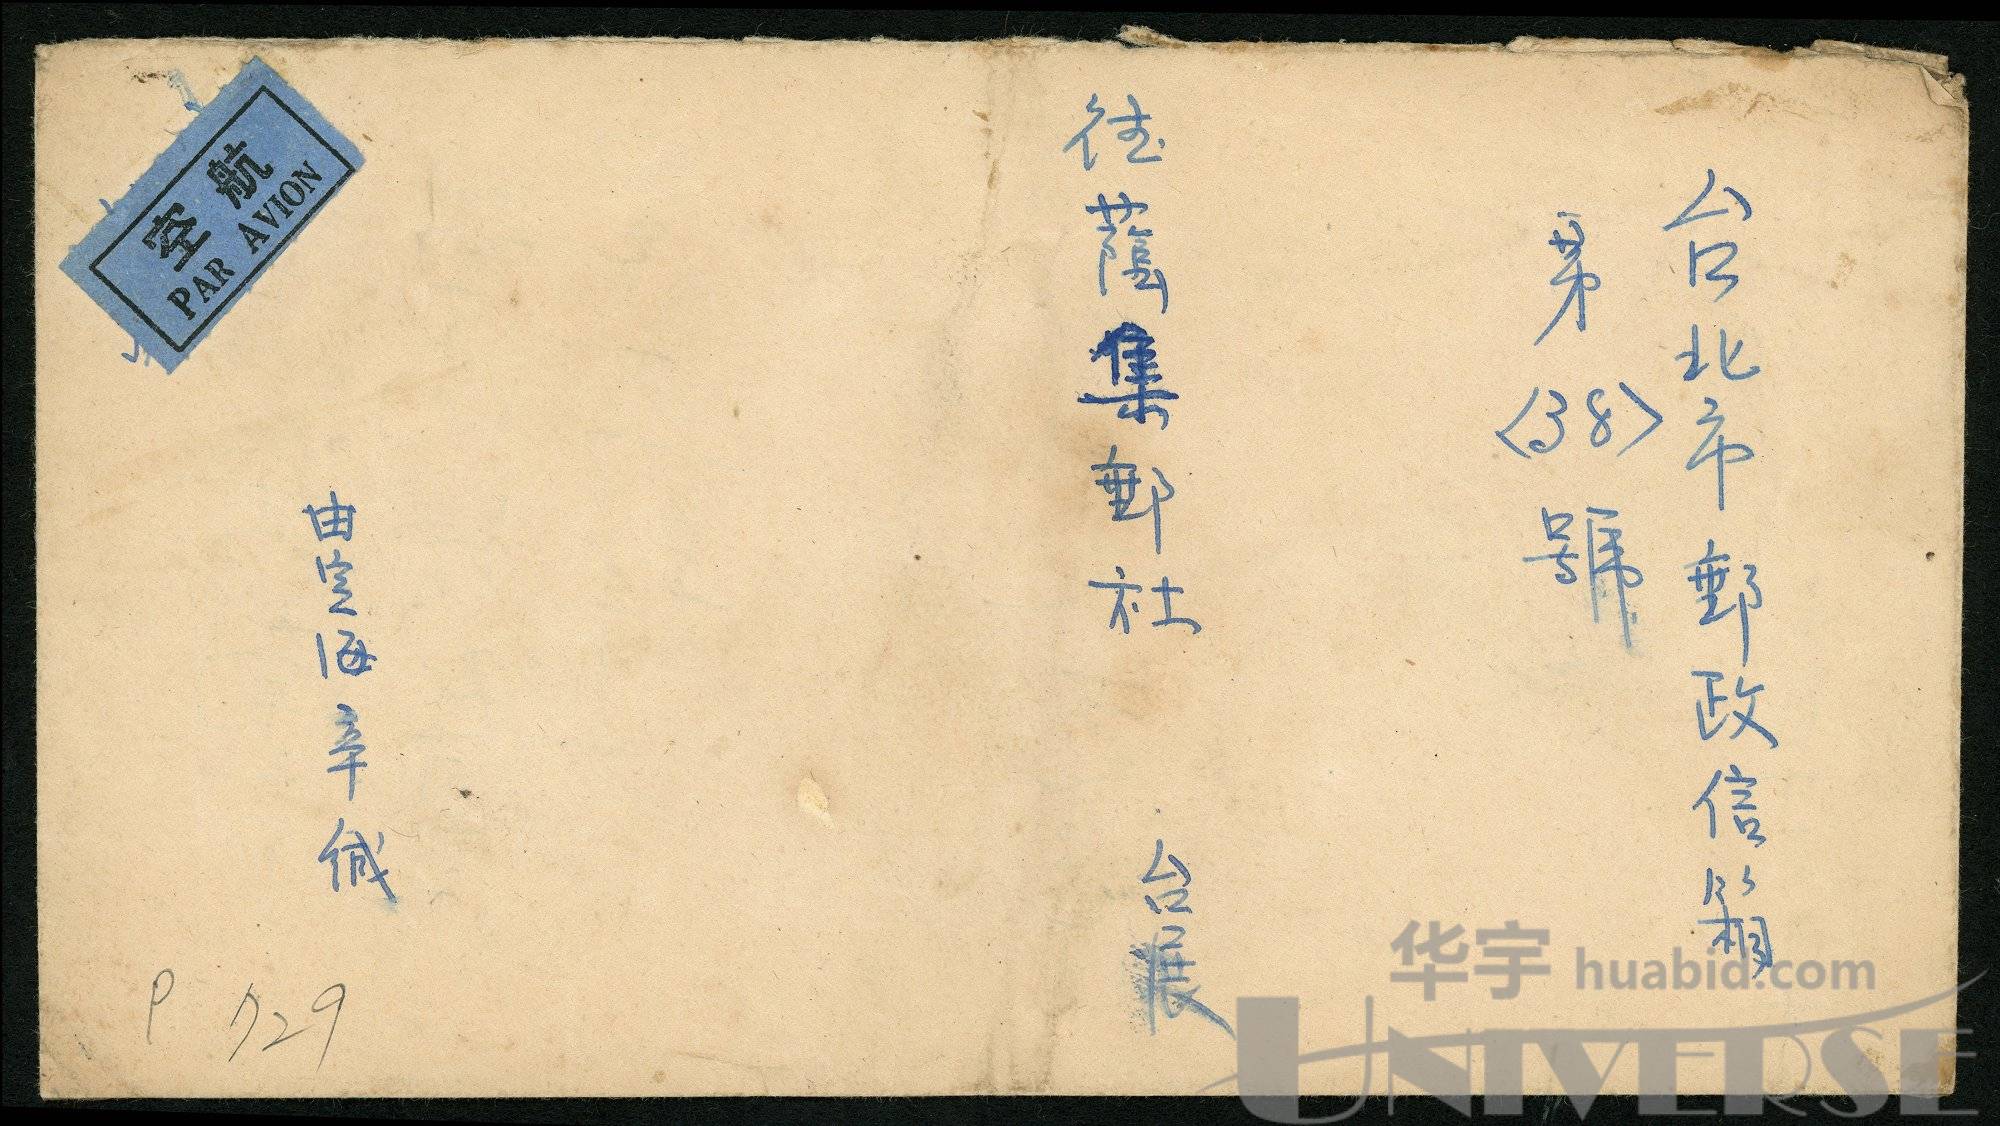 台北市郵政信箱
第〈38〉號
蔭集郵社 台展
由定海辛緘
航空
PAR AVION
P 729
华宇 huabid.com
UNIVERSE